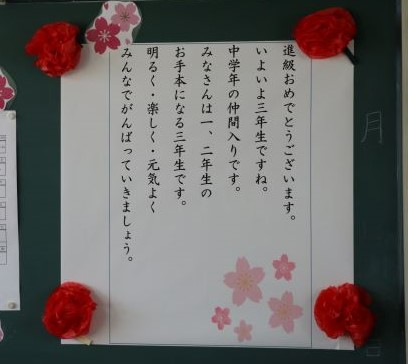 進級おめでとうございます。
いよいよ三年生ですね。
中学年の仲間入りです。
みなさんは一、二年生の
お手本になる三年生です。
明るく・楽しく・元気よく
みんなでがんばっていきましょう。
月